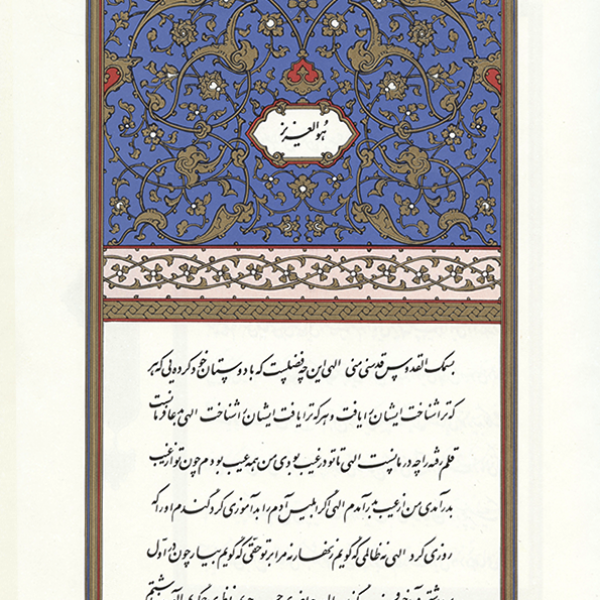 هو العزیز
بسمک القدوس قدسنی منی الهی این چه فضلیست که با دوستان خود کرده‌یی که هر
که ترا شناخت ایشانرا یافت و هر که ترا یافت ایشانرا شناخت الهی
قلم رفته را چه درمانیست الهی تا تو در غیب بودی من همه عیب بودم چون تو از غیب
بدر آمدی من از عیب بر آمدم الهی اگر ابلیس آدم را بدآموزی کرد گندم او را که
روزی کرد الهی نه ظالمی که گویم زنهار نه مرا بر تو حقی که گویم بیار چون در اول